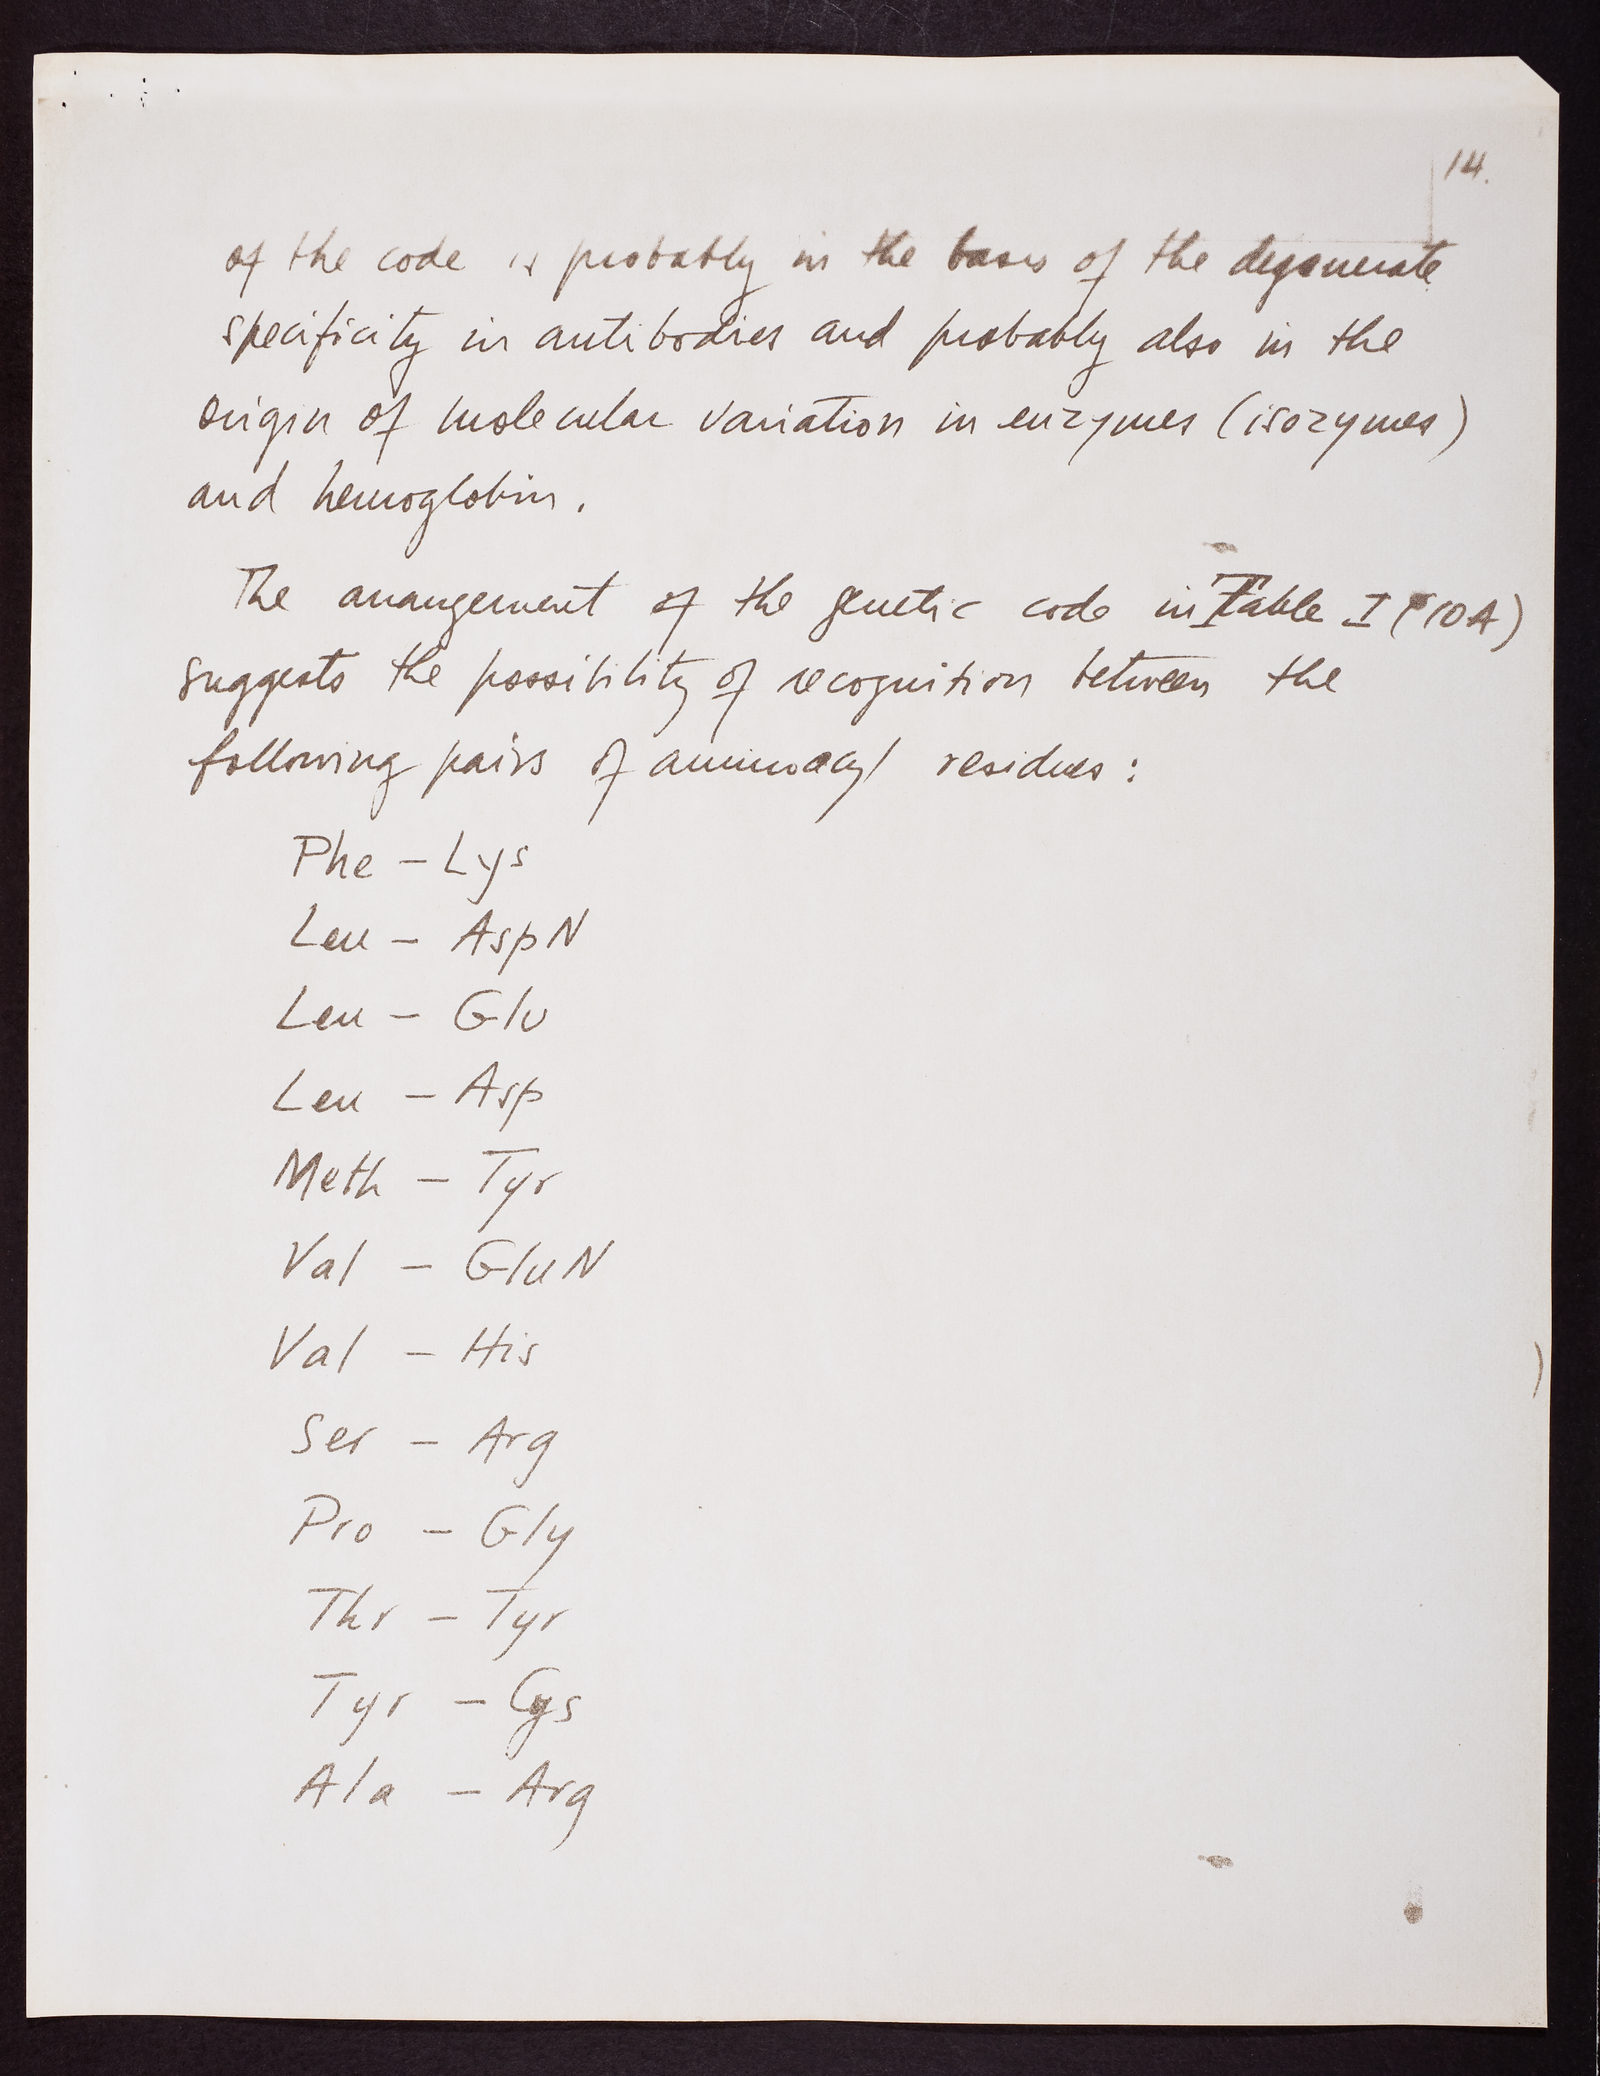 14.
of the code is probably in the basis of the degenerate
specificity in antibodies and probably also in the
origin of molecular variation in enzymes (isozymes)
and hemoglobin.
The arrangement of the genetic code in Table I (10A)
suggests the possibility of recognition between the
following pairs of aminoacyl residues:
Phe - Lys
Leu - AspN
Leu - Glu
Leu - Asp
Meth - Tyr
Val - GluN
Val - His
Ser - Arg
Pro - Gly
Thr - Tyr
Tyr - Cys
Ala - Arg